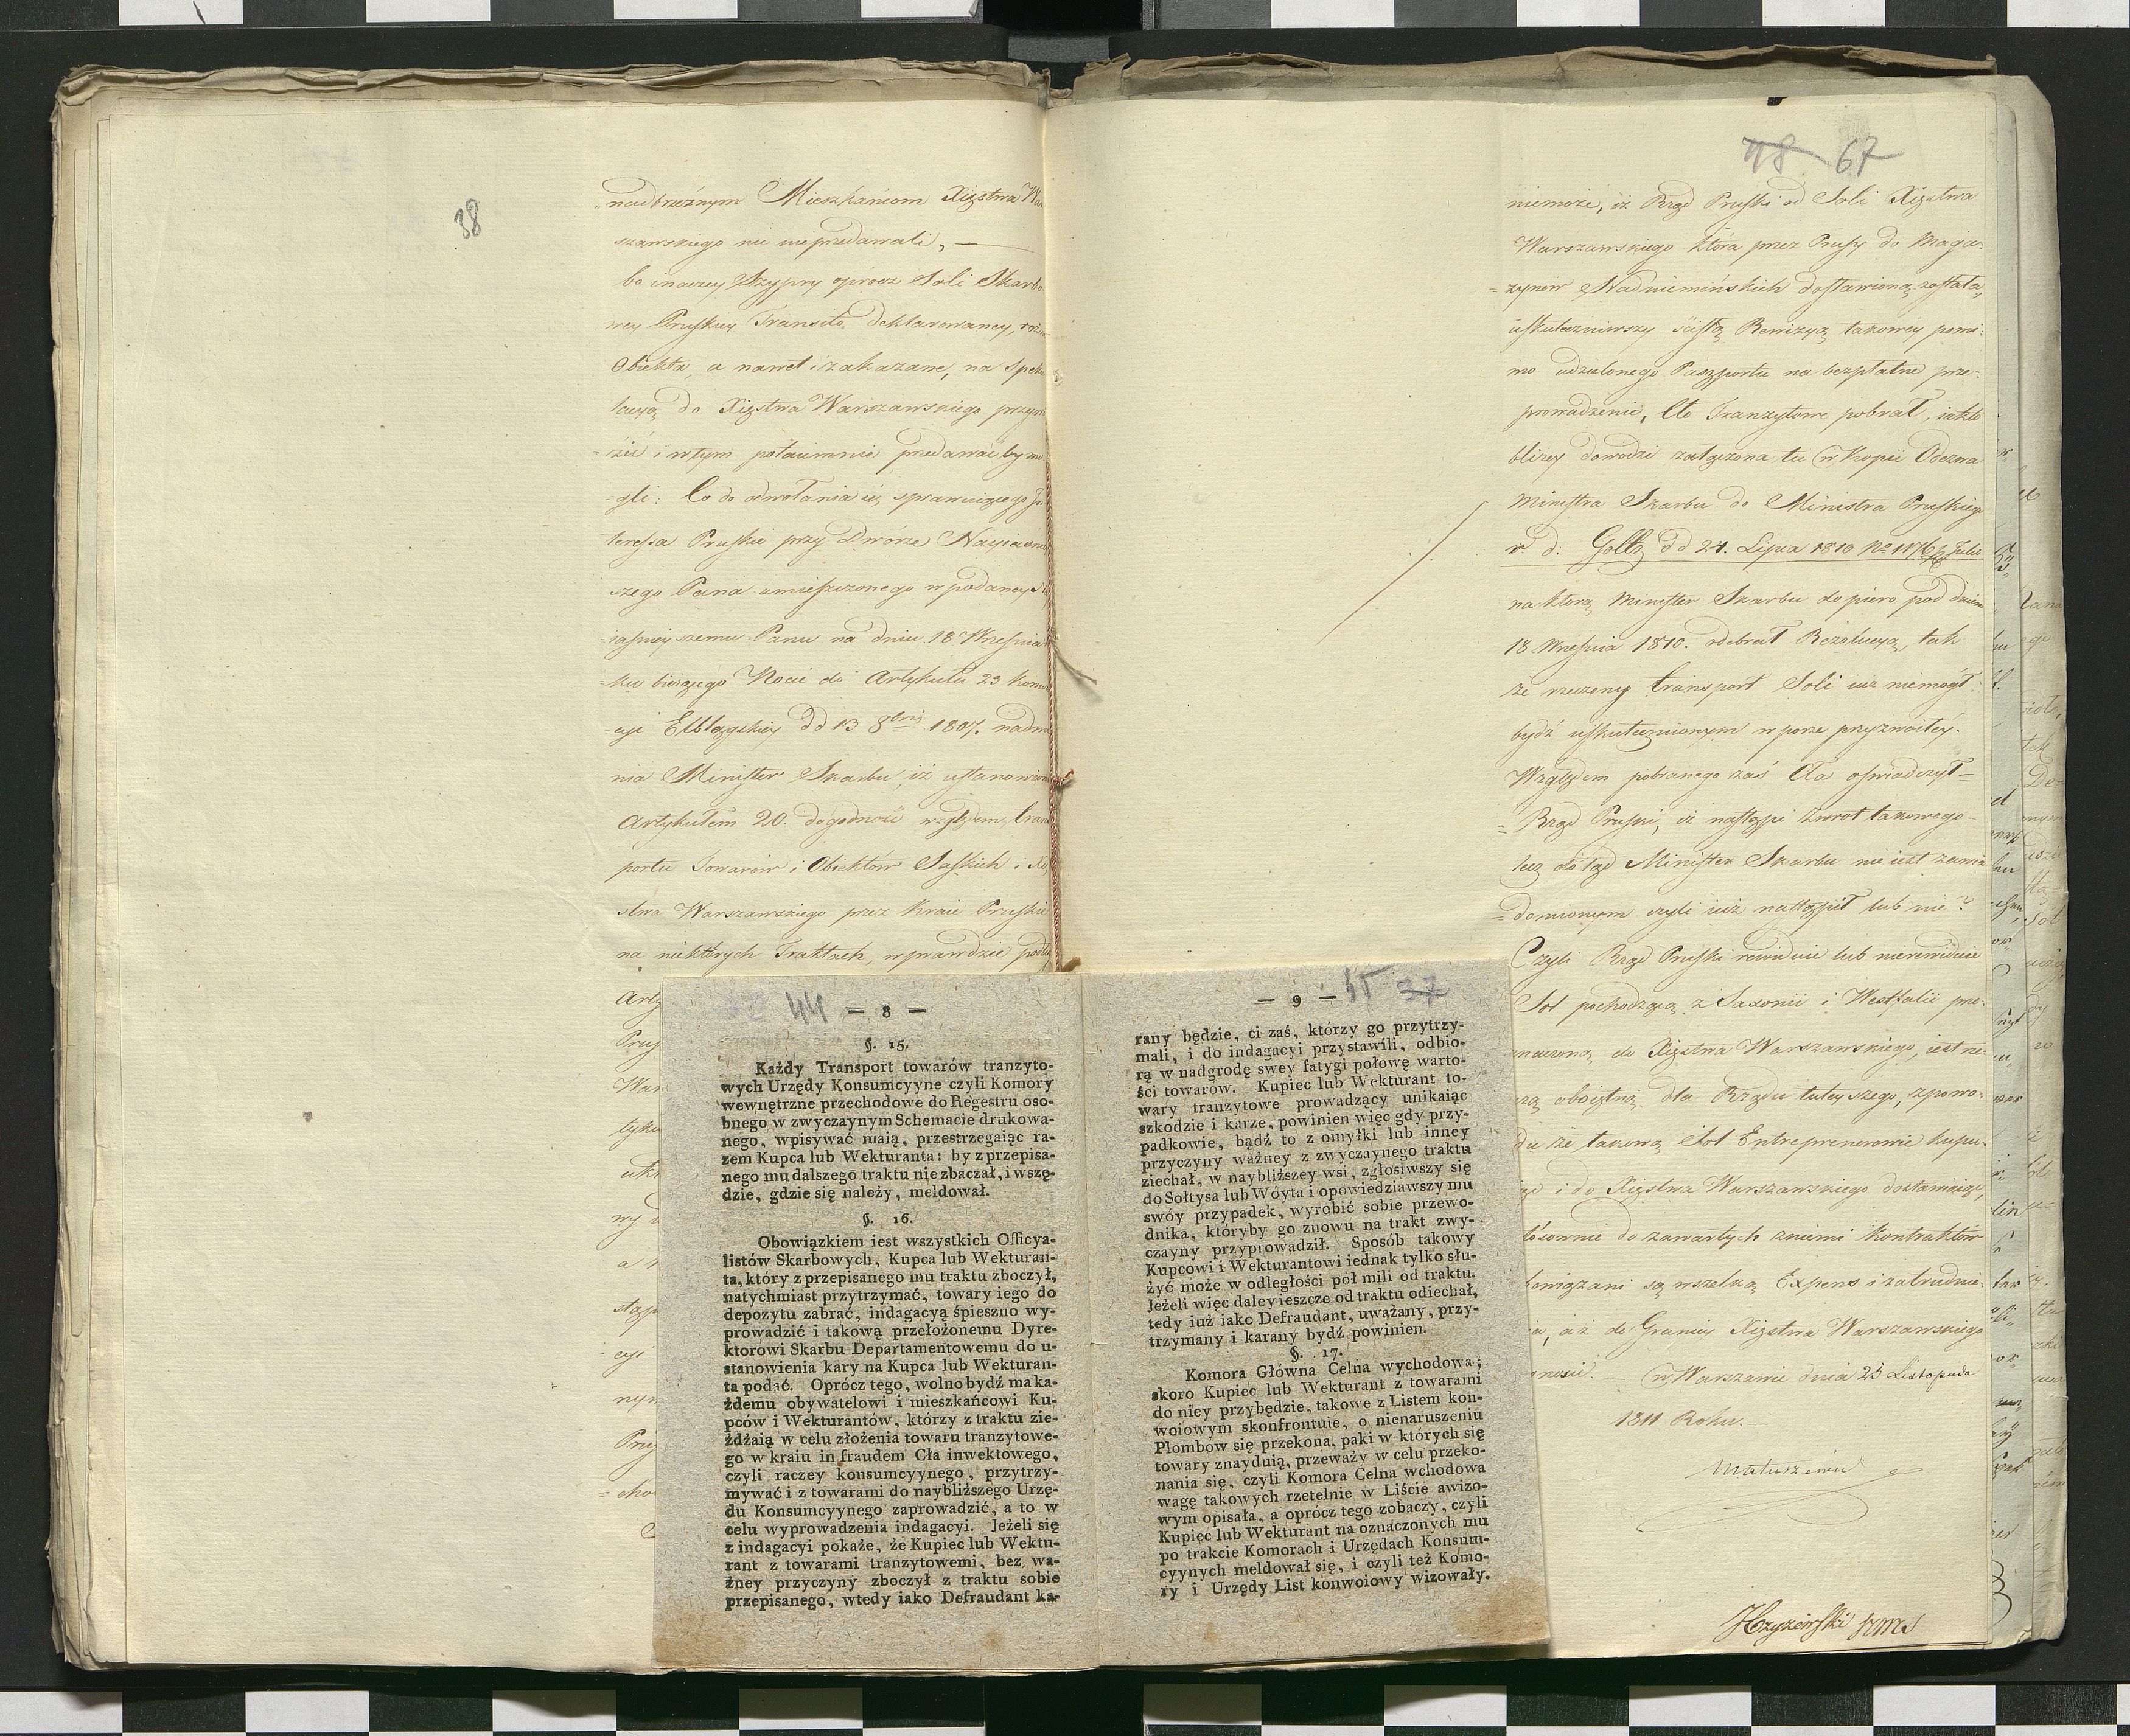 38
nadbrzeżnym Mieszkańcom Xięstwa War
szawskiego nie sprzedawali, —
bo inaczey Szypry oprócz Soli Skarbo
wey Pruskiey Transito deklarowaney, różne
Obiekta, a nawet i zakazane, na speku
lacyą do Xięstwa Warszawskiego przywo
zić i w tym potaiemnie przedawać by mo
=gli: Co do odwołania się sprawuiącego In
teressa Pruskie przy Dworze Nayiaśniey
szego Pana umieszczonego w podaney N
=iaśnieyszemu Panu na dniu 18 Września
=ku bieżącego Nocie do Artykułu 23 Konwen
=cyi Elblągskiey dd 13 8bris 1807. nadmie
nia Minister Skarbu, iż ustanowiona
Artykułem 20. dogodność względem trans
portu Towarów i Obiektów Saskich i Xię
stwa Warszawskiego przez Kraie Pruskie
na niektórych Traktach, wprawdzie podłu
Arty
Prus
War
tyku
ukł
wy
a n
stąp
= cyi
nym
Prus
= cho
44 — 8 —
§. 15.
Każdy Transport towarów tranzyto-
wych Urzędy Konsumcyyne czyli Komory
wewnętrzne przechodowe do Regestru oso-
bnego w zwyczaynym Schemacie drukowa-
nego, wpisywać maią, przestrzegaiąc ra-
zem Kupca lub Wekturanta: by z przepisa-
nego mu dalszego traktu nie zbaczał, i wszę-
dzie, gdzie się należy, meldował.
§. 16.
Obowiązkiem iest wszystkich Officya-
listów Skarbowych, Kupca lub Wekturan-
ta, który z przepisanego mu traktu zboczył,
natychmiast przytrzymać, towary iego do
depozytu zabrać, indagacyą śpieszno wy-
prowadzić i takową przełożonemu Dyre-
ktorowi Skarbu Departamentowemu do u-
stanowienia kary na Kupca lub Wekturan-
ta podać. Oprócz tego, wolno bydź ma ka-
żdemu obywatelowi i mieszkańcowi Ku-
pców i Wekturantów, którzy z traktu zie-
żdżaią w celu złożenia towaru tranzytowe-
go w kraiu in fraudem Cła inwektowego,
czyli raczey konsumcyynego, przytrzy-
mywać i z towarami do naybliższego Urzę-
du Konsumcyynego zaprowadzić, a to w
celu wyprowadzenia indagacyi. Jeżeli się
z indagacyi pokaże, że Kupiec lub Wektu-
rant z towarami tranzytowemi, bez wa-
żney przyczyny zboczył z traktu sobie
przepisanego, wtedy iako Defraudant ka-
— 9 — 45 37
rany będzie, ci zaś, którzy go przytrzy-
mali, i do indagacyi przystawili, odbio-
rą w nadgrodę swey fatygi połowę warto-
ści towarow. Kupiec lub Wekturant to-
wary tranzytowe prowadzący unikaiąc
szkodzie i karze, powinien więc gdy przy-
padkowie, bądź to z omyłki lub inney
przyczyny ważney z zwyczaynego traktu
ziechał, w naybliższey wsi, zgłosiwszy się
do Sołtysa lub Wóyta i opowiedziawszy mu
swóy przypadek, wyrobić sobie przewo-
dnika, któryby go znowu na trakt zwy-
czayny przyprowadził. Sposób takowy
Kupcowi i Wekturantowi iednak tylko słu-
żyć może w odległości pół mili od traktu.
Jeżeli więc daley ieszcze od traktu odiechał,
tedy iuż iako Defraudant, uważany, przy-
trzymany i karany bydź powinien.
§. 17.
Komora Główna Celna wychodowa;
skoro Kupiec lub Wekturant z towarami
do niey przybędzie, takowe z Listem kon-
woiowym skonfrontuie, o nienaruszeniu
Plombów się przekona, paki w których się
towary znayduią, przeważy w celu przeko-
nania się, czyli Komora Celna wchodowa
wagę takowych rzetelnie w Liście awizo-
wym opisała, a oprócz tego zobaczy, czyli
Kupiec lub Wekturant na oznaczonych mu
po trakcie Komorach i Urzędach Konsum-
cyynych meldował się, i czyli też Komo-
ry i Urzędy List konwoiowy wizowały.
48 67
niemoże, iż Rząd Pruski od Soli Xięstwa
Warszawskiego która przez Prusy do Maga-
=zynów Nadniemeńskich dostawioną została,
uskuteczniwszy ścisłą Rewizyą takowey pomi-
mo udzielonego Paszportu na bezpłatne prze-
prowadzenie, Cło Tranzytowe pobrał, iak to
bliżey dowodzi załączona tu w Kopii Odezwa
Ministra Skarbu do Ministra Pruskiego
v d: Goltz dd 24. Lipca 1810 No 1176
na którą Minister Skarbu dopiero pod dniem
18 Września 1810. odebrał Rezolucyą, tak
że rzeczony transport Soli iuż niemógł
bydź uskutecznionym w porze przyzwoitey.
Względem pobranego zaś Cła oświadczył
= Rząd Pruski, iż nastąpi zwrot takowego
lecz dotąd Minister Skarbu nie iest zawia
= domionym czyli iuż nastąpił lub nie?
Czyli Rząd Pruski rewiduie lub nierewiduie
Sól pochodzącą z Saxonii i Westfalii prze-
znaczoną do Xięstwa Warszawskiego, iest rze-
czą oboiętną dla Rządu tuteyszego, z powo-
du że takową Sól Entreprenerowie kupu-
ią i do Xięstwa Warszawskiego dostawiaią,
stósownie do zawartych z niemi Kontraktów
obowiązani są wszelką Expens i zatrudnie-
nia, aż do Granicy Xięstwa Warszawskiego
ponosić. — w Warszawie dnia 25 Listopada
1811 Roku. —
Matuszewic